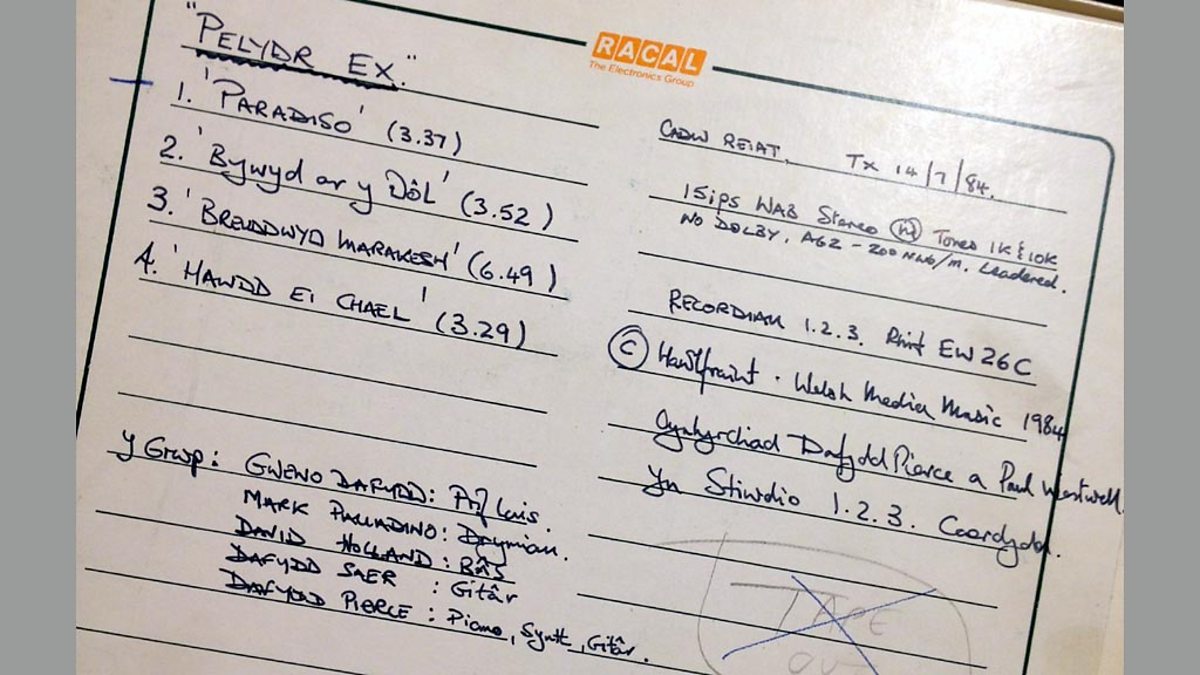 "PELYDR EX."
1. 'PARADISO' (3.37)
2. 'Bywyd ar y Dôl' (3.52)
3. 'BREUDDWYD MARAKESH' (6.49)
4. 'HAWDD EI CHAEL' (3.29)
Y Grwp: GWENO DAFYDD: Prif Lais.
MARK PALLADINO: Drymiau.
DAVID HOLLAND: Bâs
DAFYDD SAER : Gitâr
DAFYDD PIERCE : Piano, Synth, Gitâr.
RACAL
The Electronics Group
CADW REIAT. TX 14/7/84.
15ips NAB Stereo Tones 1K & 10K
NO DOLBY. AGZ - 200 nWb/m. Leadered.
RECORDIAU 1.2.3. Rhif EW26C
© Hawlfraint. Welsh Media Music 1984
Cynhyrchiad Dafydd Pierce a Paul Westwell.
Yn Stiwdio 1.2.3. Caerdydd.
TAPE